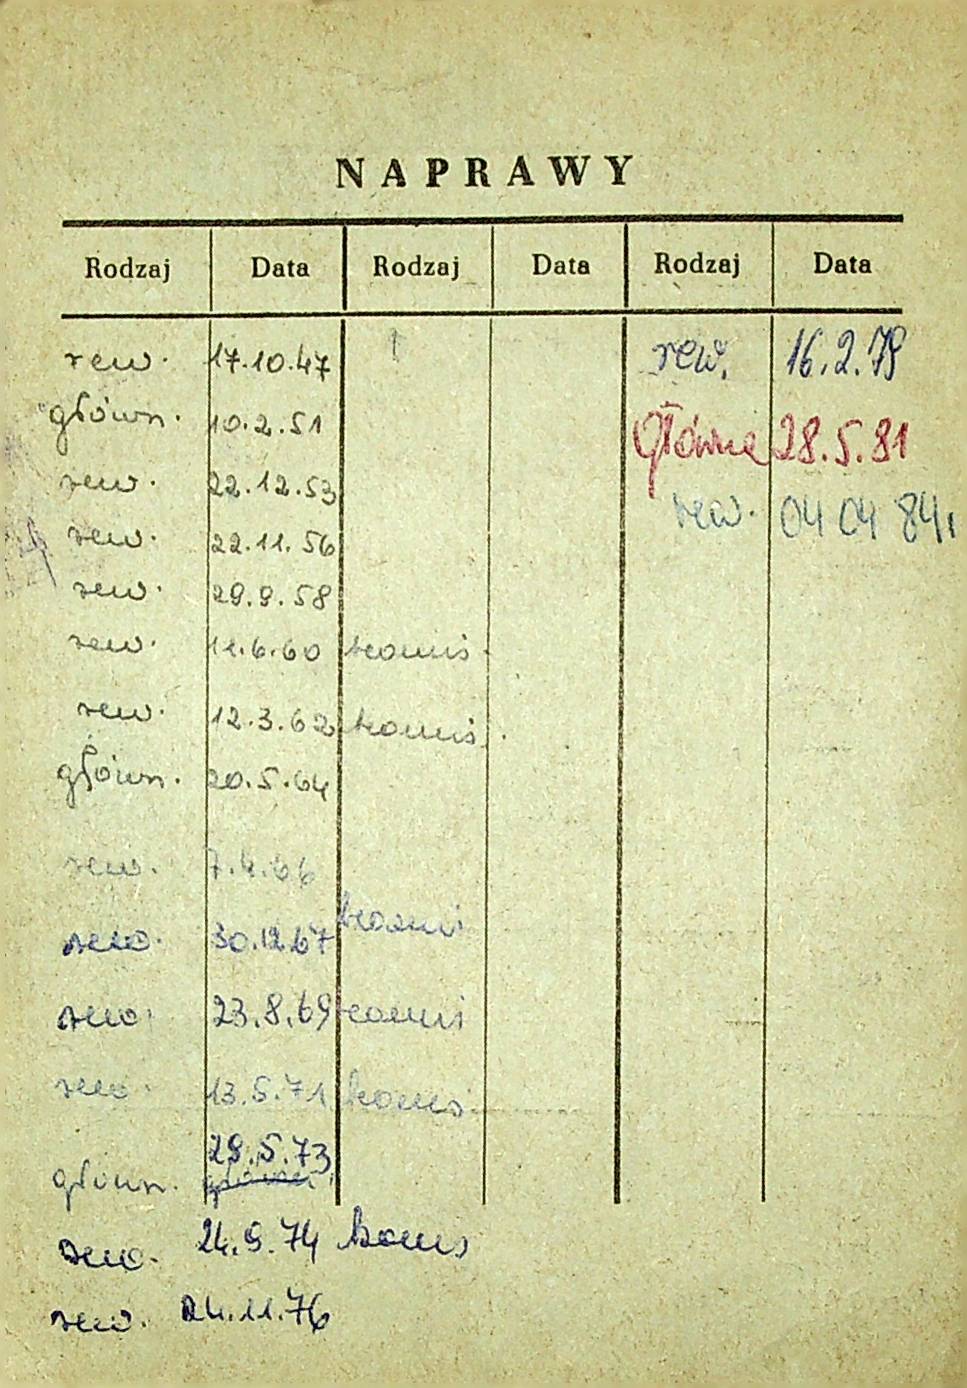 NAPRAWY
Rodzaj Data Rodzaj Data Rodzaj Data
rew. 17.10.47 rew. 16.2.79
główn. 10.2.51 Główna 28.5.81
rew. 22.12.53 rew. 04 04 84
rew. 22.11.56
rew. 29.9.58
rew. 11.6.60
rew. 12.3.62
główn. 20.5.64
rew. 7.4.66
rew. 30.12.67
rew. 23.8.69
rew. 13.5.71
29.5.73
główn.
rew. 24.9.74
rew. 24.11.76